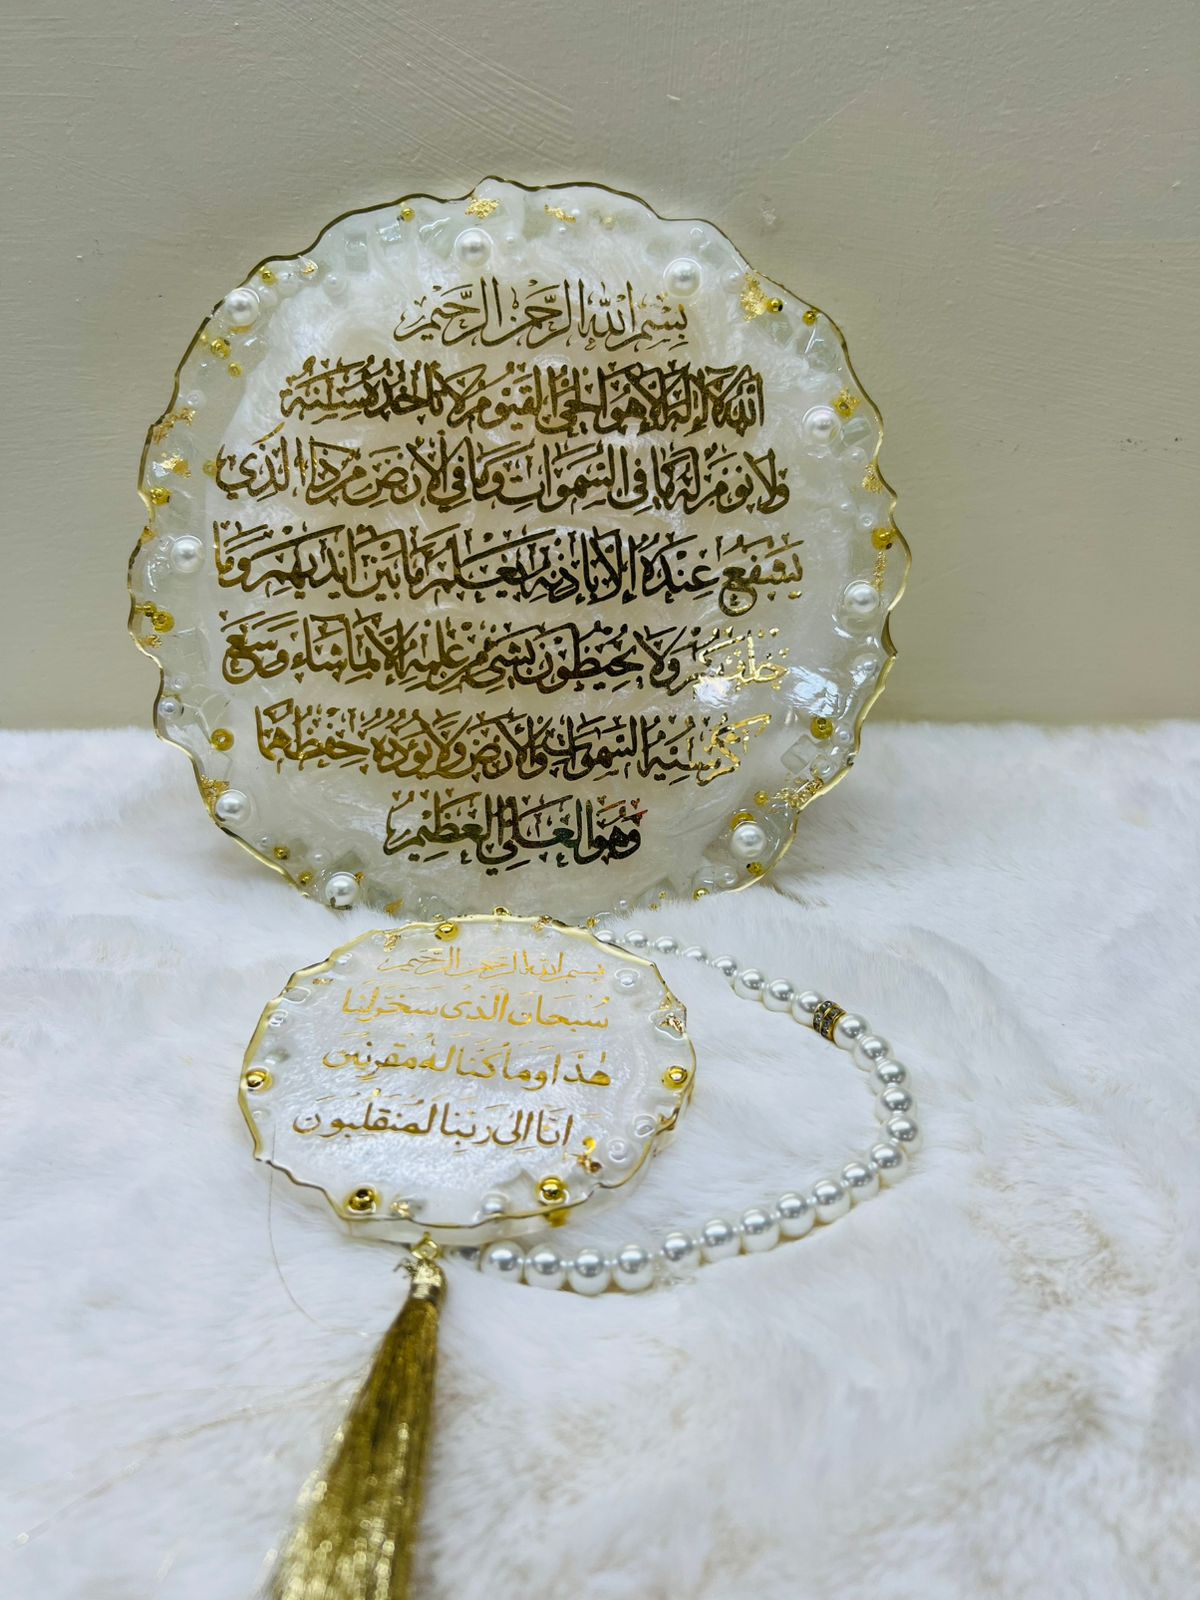 بِسْمِ اللهِ الرَّحْمٰنِ الرَّحِيْمِ
اللهُ لَا إِلٰهَ إِلَّا هُوَ الْحَيُّ الْقَيُّومُ لَا تَأْخُذُهُ سِنَةٌ
وَلَا نَوْمٌ لَهُ مَا فِي السَّمٰوَاتِ وَمَا فِي الْأَرْضِ مَنْ ذَا الَّذِي
يَشْفَعُ عِنْدَهُ إِلَّا بِإِذْنِهِ يَعْلَمُ مَا بَيْنَ أَيْدِيهِمْ وَمَا
خَلْفَهُمْ وَلَا يُحِيطُونَ بِشَيْءٍ مِنْ عِلْمِهِ إِلَّا بِمَا شَاءَ وَسِعَ
كُرْسِيُّهُ السَّمٰوَاتِ وَالْأَرْضَ وَلَا يَؤُدُهُ حِفْظُهُمَا
وَهُوَ الْعَلِيُّ الْعَظِيمُ
بسم الله الرحمن الرحيم
سُبْحَانَ الَّذِى سَخَّرَ لَنَا
هٰذَا وَمَا كُنَّا لَهُ مُقْرِنِينَ
وَ اِنَّا اِلٰى رَبِّنَا لَمُنْقَلِبُونَ